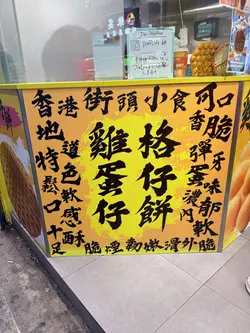 香港街頭小食可口
地道
特色
鬆軟
口感
十足
雞蛋仔
格仔餅
香脆
彈牙
蛋味
濃郁
內軟
外脆
酥脆煙韌嫩滑